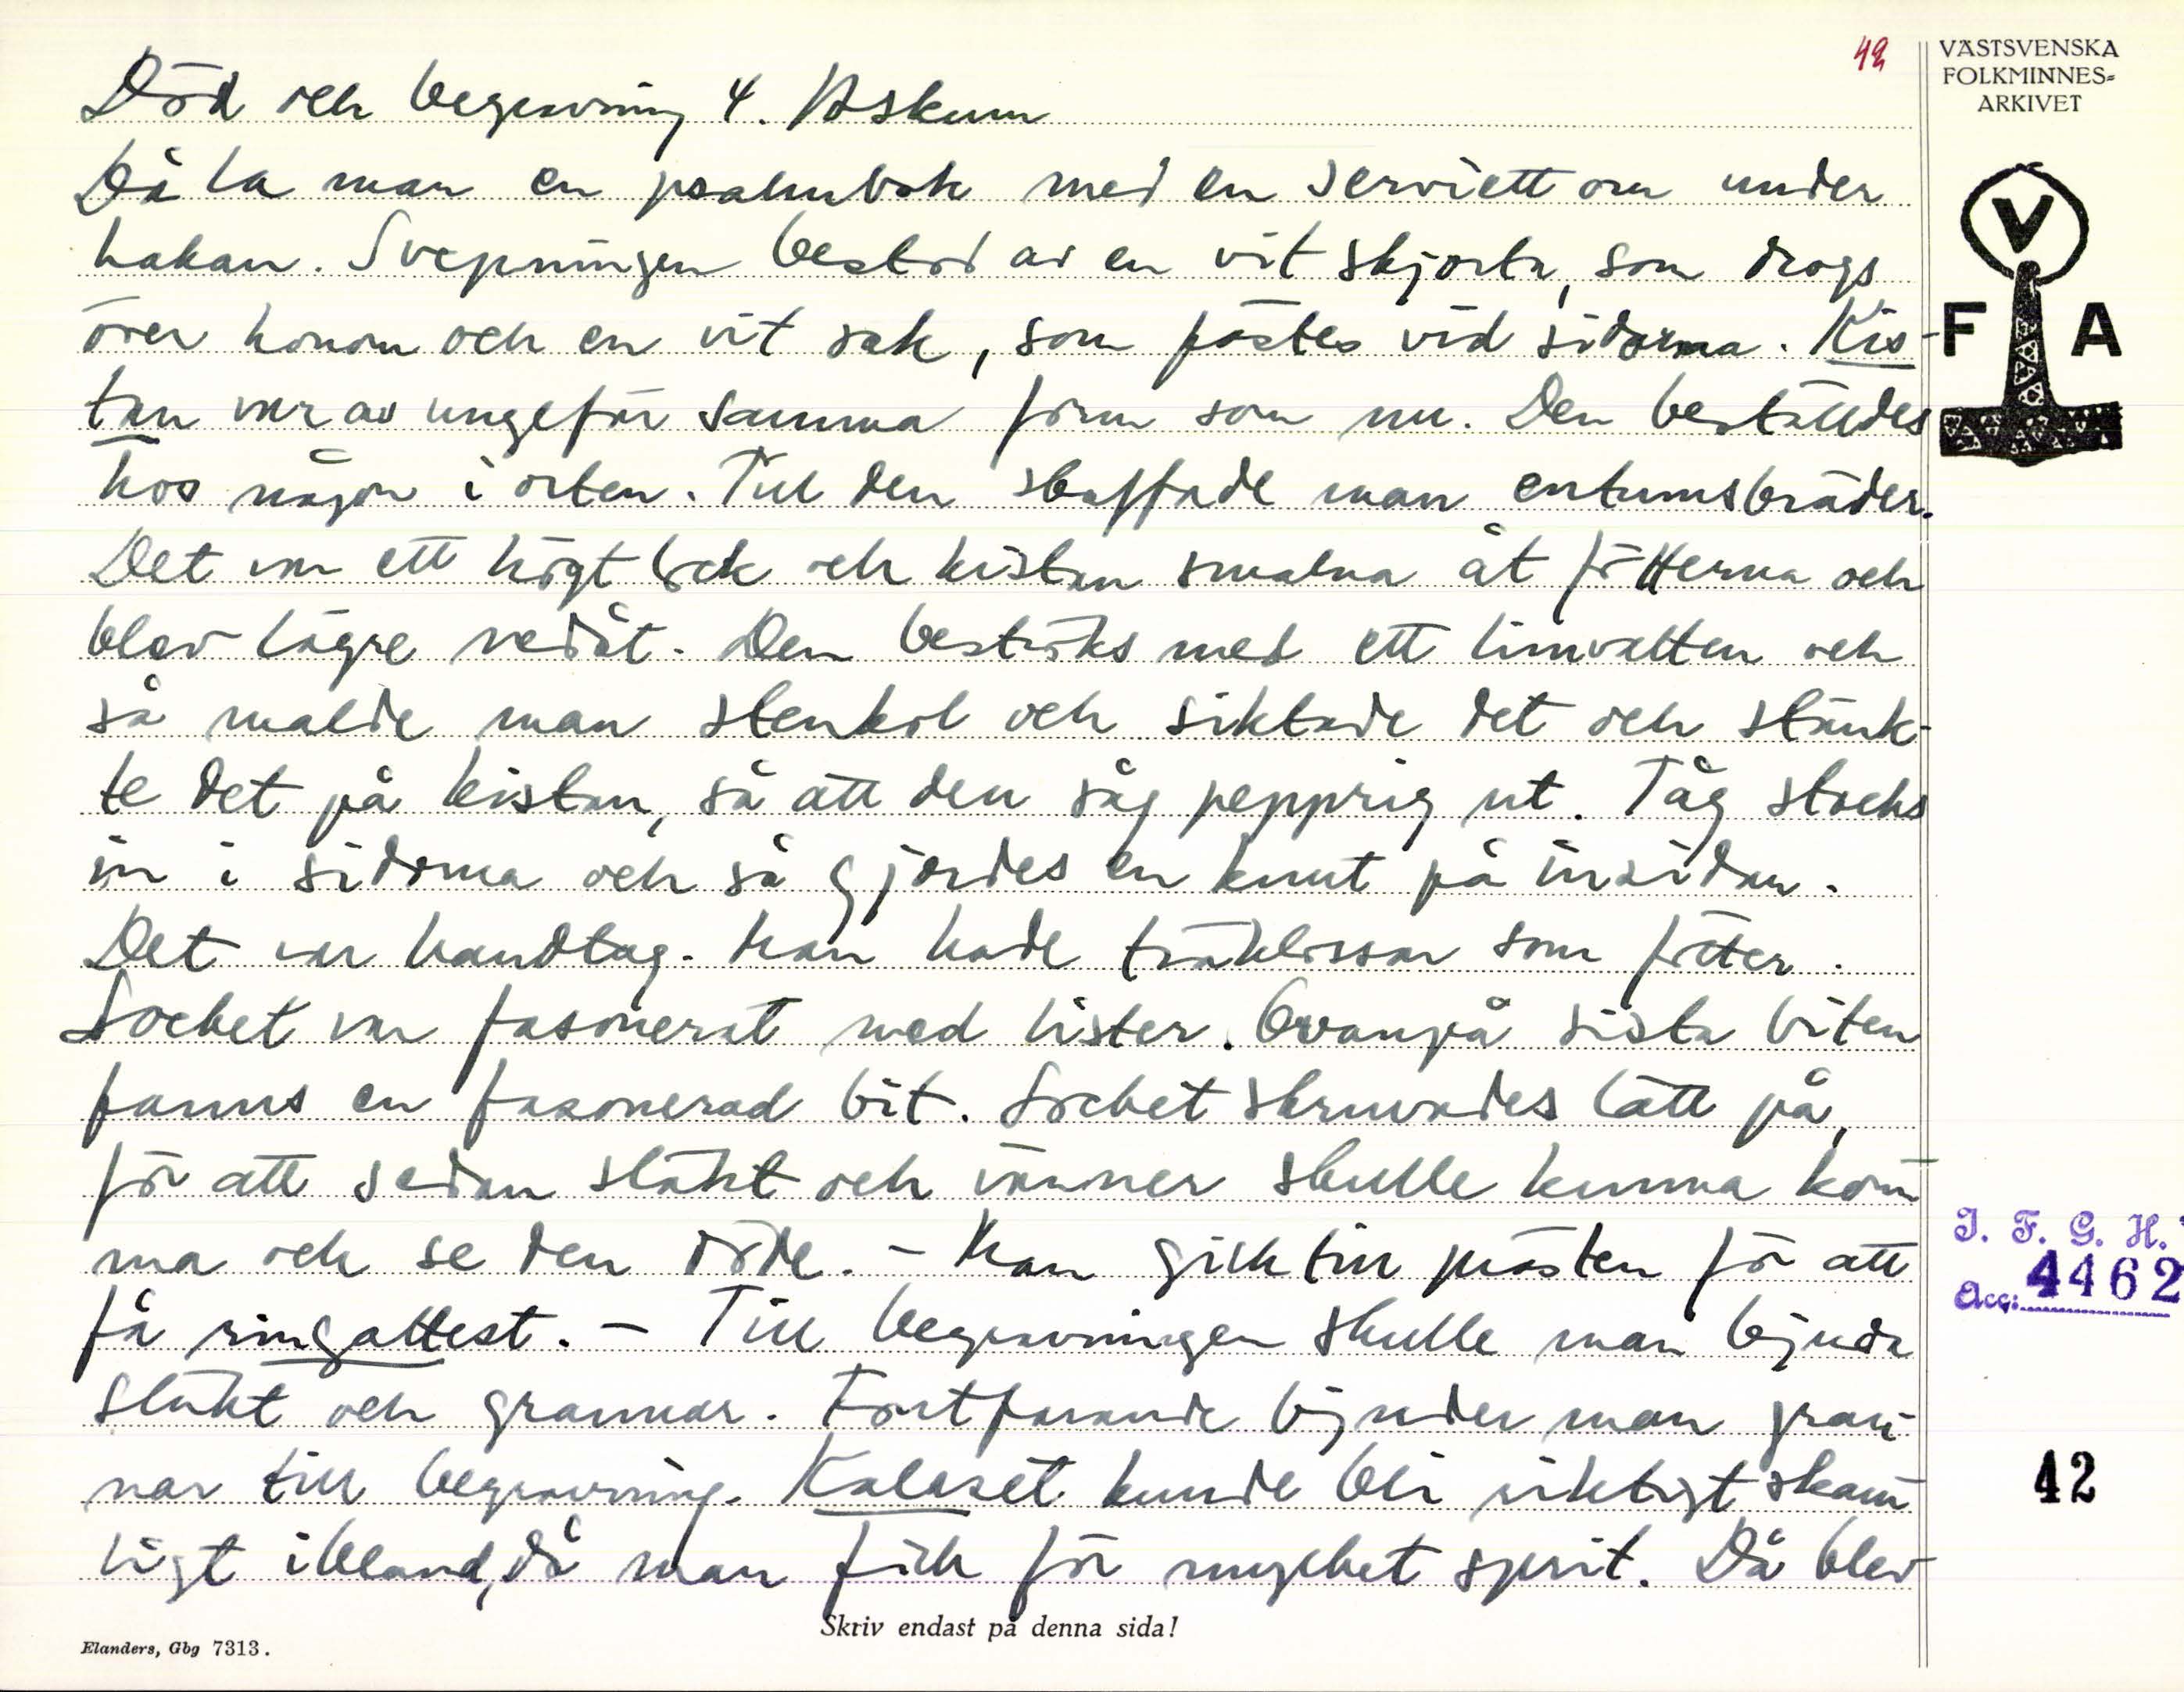 42
VÄSTSVENSKA
FOLKMINNES-
ARKIVET
Död och begravning 4. Askum
Då la man en psalmbok med en serviett om under
hakan. Svepningen bestod av en vit skjorta, som drogs
över honom och en vit sak, som fästes vid sidorna. Kis-
tan var av ungefär samma form som nu. Den beställdes
hos någon i orten. Till den skaffade man entumsbräder.
Det var ett högt lock och kistan smalna åt fötterna och
blev lägre nedåt. Den beströks med ett limvatten och
så malde man stenkol och siktade det och stänk-
te det på kistan, så att den såg pepprig ut. Tåg stacks
in i sidorna och så gjordes en knut på insidan.
Det var handtag. Man hade träklossar som fötter.
Locket var fasonerat med lister. Ovanpå sista biten
fanns en fasonerad bit. Locket skruvades lätt på,
för att sedan släkt och vänner skulle kunna kom-
ma och se den döde. - Man gick till prästen för att
få ringattest. - Till begravningen skulle man bjuda
släkt och grannar. Fortfarande bjuder man gran-
nar till begravning. Kalaset kunde bli riktigt skam-
ligt ibland, då man fick för mycket sprit. Då blev
V
F A
I. F. G. H.
Acc: 4462
42
Skriv endast på denna sida!
Elanders, Gbg 7313.